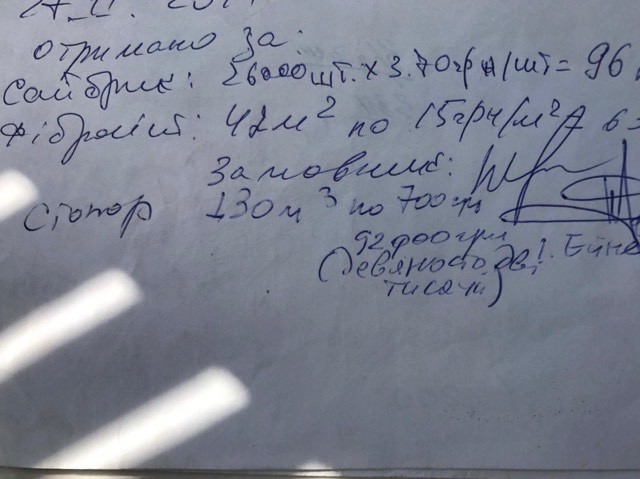 отримано за:
Сайбрик: 26000шт. х 3.70грн/шт = 96
Фіброліт: 42м² по 15грн/м²
Замовник:
Столяр 130м³ по 700грн
92 000грн
(Девяносто дві
тисячі)